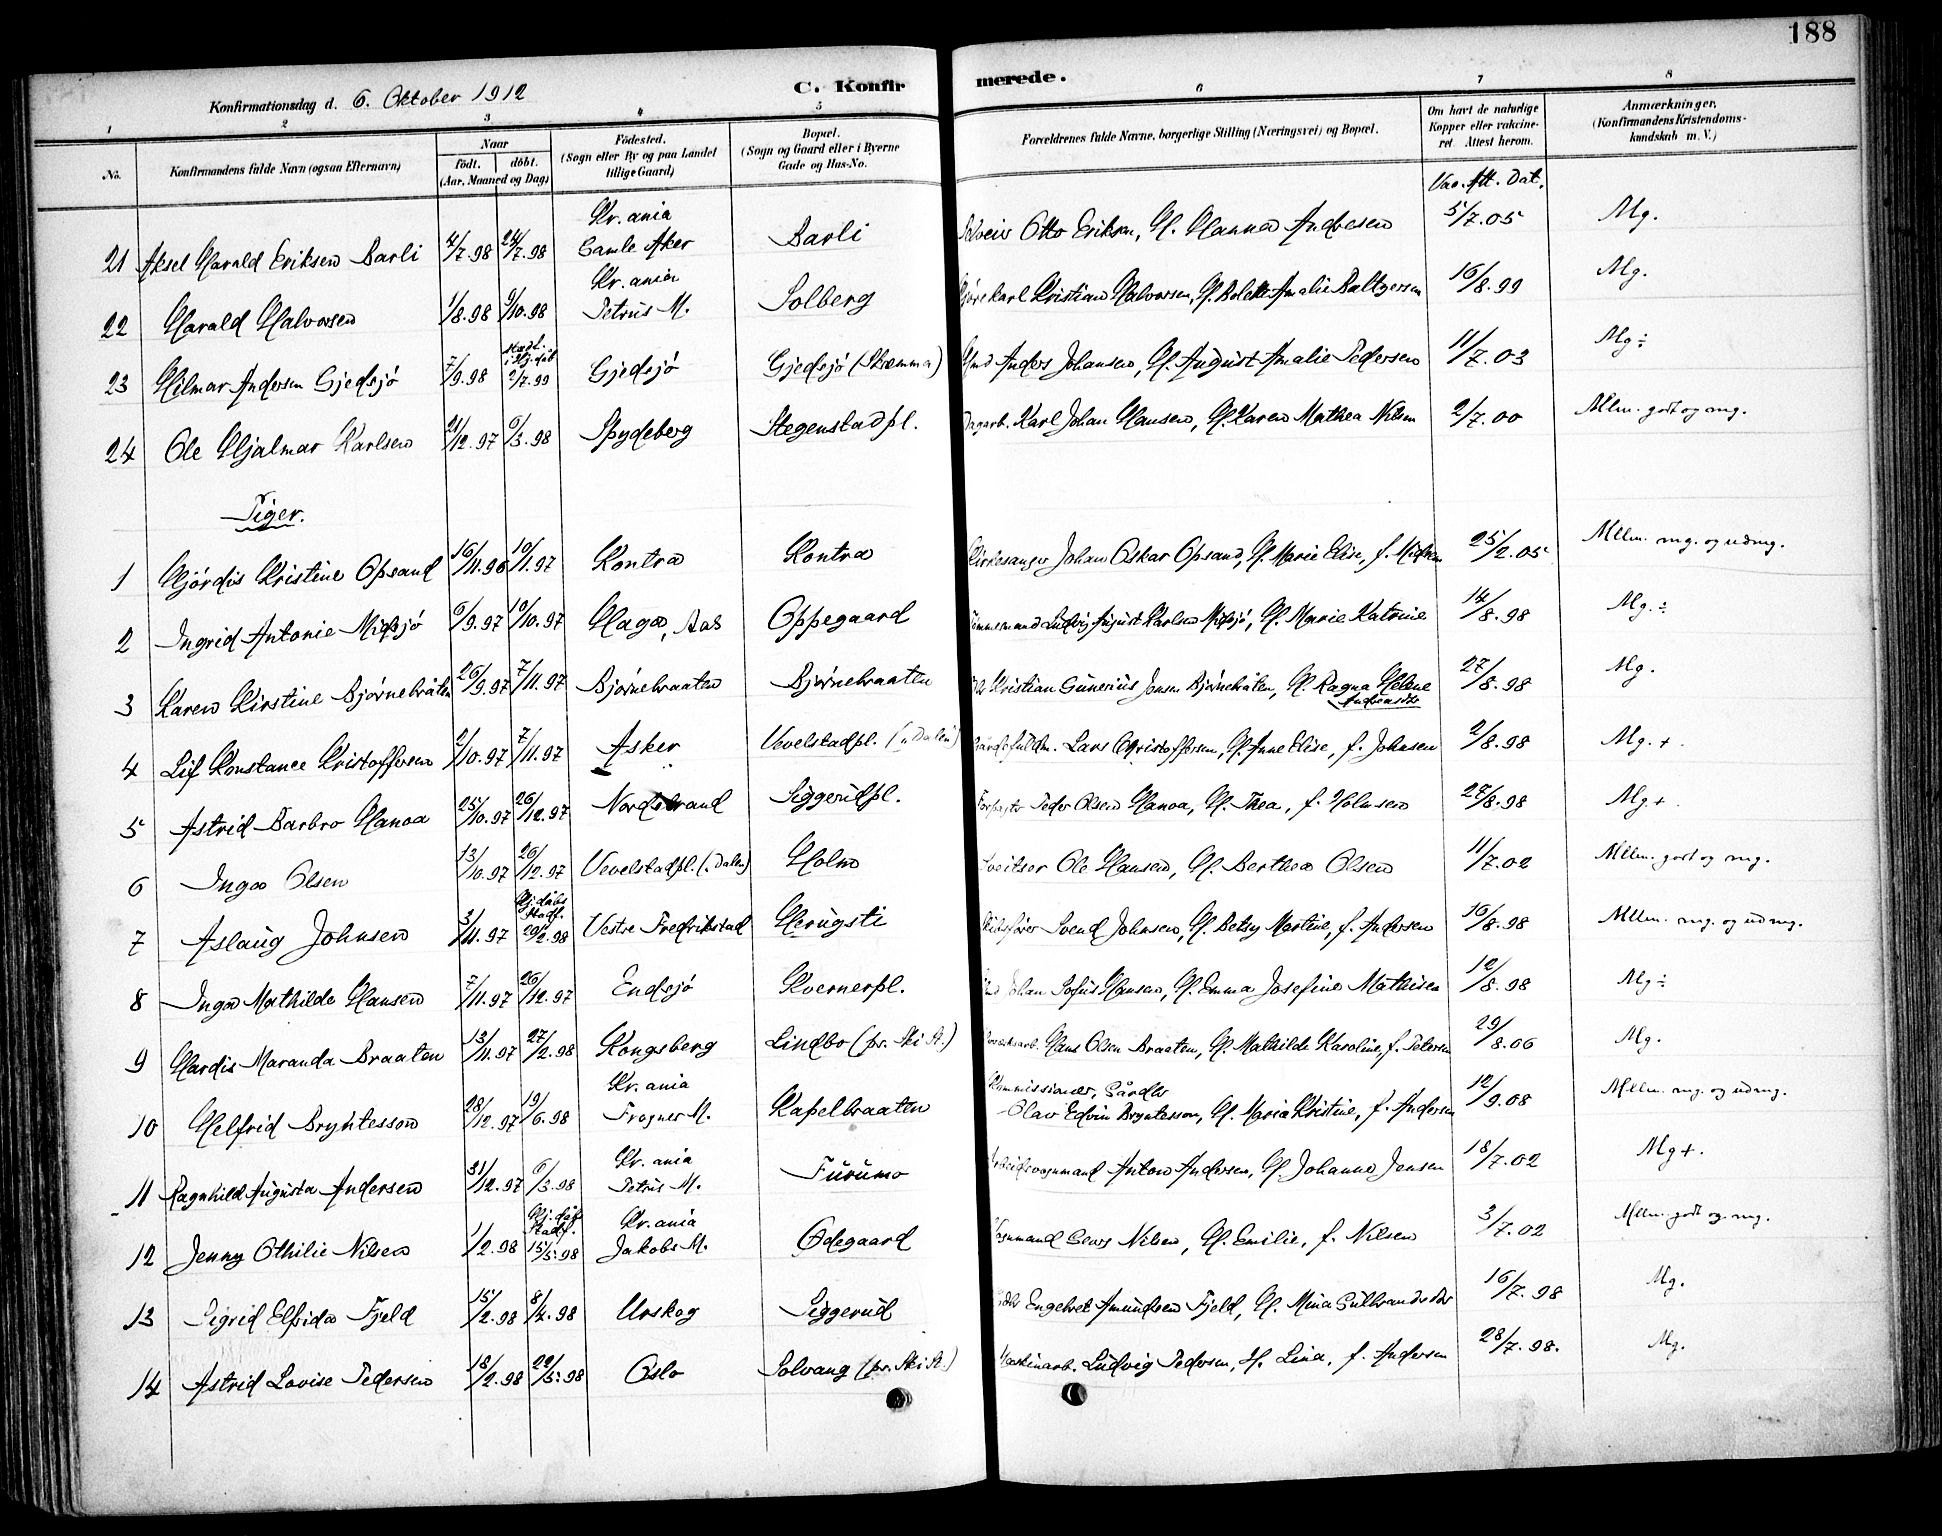 188
Konfirmationsdag d. 6. Oktober 1912 C. Konfirmerede.
1 2 3 4 5 6 7 8
No. Konfirmandens fulde Navn (ogsaa Efternavn) Naar født. døbt. (Aar, Maaned og Dag) Fødested. (Sogn eller By og paa Landet tillige Gaard) Bopæl. (Sogn og Gaard eller i Byerne Gade og Hus-No. Forældrenes fulde Navne, borgerlige Stilling (Næringsvei) og Bopæl. Om havt de naturlige Kopper eller vakcineret. Attest herom. Anmærkninger. (Konfirmandens Kristendomskundskab m. V.)
Vac. Att. Dat.
21 Aksel Harald Eriksen Barli 4/7.98 24/7.98 Kr.ania Gamle Aker Barli Otto Eriksen, H. Hanna Andresen 5/7.05 Mg.
22 Harald Halvorsen 1/8.98 9/10.98 Kr.ania Petrus M. Solberg Kjørekarl Kristian Halvorsen, H. Bolette Amalie Baltzersen 16/8.99 Mg.
23 Hilmar Andersen Gjedsjø 7/9.98 Stadf. Hj.døb 2/7.99 Gjedsjø Gjedsjø (Skræmma) Anders Johansen, H. August Amalie Pedersen 11/7.03 Mg ÷
24 Ole Hjalmar Karlsen 21/12.97 6/3.98 Spydeberg Stegenstadpl. Dagarb. Karl Johan Hansen, H. Karen Mathea Nilsen 2/7.00 Mllm. godt og mg.
Piger.
1 Hjørdis Kristine Opsand 16/11.96 10/1.97 Kontra Kontra Kirkesanger Johan Oskar Opsand, H. Marie Elise, f. 25/2.05 Mllm. mg. og udmg.
2 Ingrid Antonie Midsjø 6/9.97 10/10.97 Haga, Aas Oppegaard Tømmermand Ludvig August Karlsen Midsjø, H. Marie Katrine 14/8.98 Mg. ÷
3 Karen Kirstine Bjørnebråten 26/9.97 7/11.97 Bjørnebraaten Bjørnebraaten Kristian Gunerius Jensen Bjørnebråten, H. Ragna Helene Andreasdtr 27/8.98 Mg.
4 Lif Konstance Kristoffersen 2/10.97 7/11.97 Asker Vevelstadpl. (u Dalen) Gårdsfuldm. Lars Christoffersen, H. Anne Elise, f. Johnsen 2/8.98 Mg. +.
5 Astrid Barbro Hanoa 25/10.97 26/12.97 Nordstrand Siggerudpl. Forpagter Peder Olsen Hanoa, H. Thea, f. Holmsen 27/8.98 Mg +.
6 Inga Olsen 13/10.97 26/12.97 Vevelstadpl. (Dalen) Holm Sveitser Ole Hansen, H. Berthea Olsen 11/7.02 Mllm. godt og mg.
7 Aslaug Johnsen 3/11.97 Hj.døbs Stadf. 20/2.98 Vestre Fredrikstad Herugsti Skibsfører Svend Johnsen, H. Betsy Martine, f. Andersen 16/8.98 Mllm. mg. og udmg.
8 Inga Mathilde Hansen 7/11.97 26/12.97 Endsjø Kvernerpl. Johan Sofus Hansen, H. Emma Josefine Mathisen 12/8.98 Mg ÷
9 Hardis Maranda Braaten 13/11.97 27/2.98 Kongsberg Lindbo (pr. Ski St.) Hans Olsen Braaten, H. Mathilde Karoline, f. Petersen 29/8.06 Mg.
10 Helfrid Bryntesson 28/12.97 19/6.98 Kr.ania Frogner M. Kapelbraaten Kommissionær, Gårdbr Olav Edvin Bryntesson, H. Maria Kristine, f. Andersen 12/9.08 Mllm. mg. og udmg.
11 Ragnhild Augusta Andersen 31/12.97 6/3.98 Kr.ania Petrus M. Furumo Arbeidsvognmand Anton Andersen, H. Johanne Jensen 18/7.02 Mg +.
12 Jenny Othilie Nilsen 1/2.98 Hj.døb Stadf. 15/5.98 Kr.ania Jakobs M. Ødegaard Vognmand Georg Nilsen, H. Emilie, f. Nilsen 3/7.02 Mllm. godt og mg.
13 Sigrid Elfrida Fjeld 15/2.98 8/4.98 Urskog Siggerud Engebret Amundsen Fjeld, H. Mina Gulbrandsdtr 16/7.98 Mg.
14 Astrid Lovise Pedersen 18/2.98 22/5.98 Oslo Solvang (pr. Ski St.) Maskinarb. Ludvig Pedersen, H. Lina, f. Andersen 28/7.98. Mg.